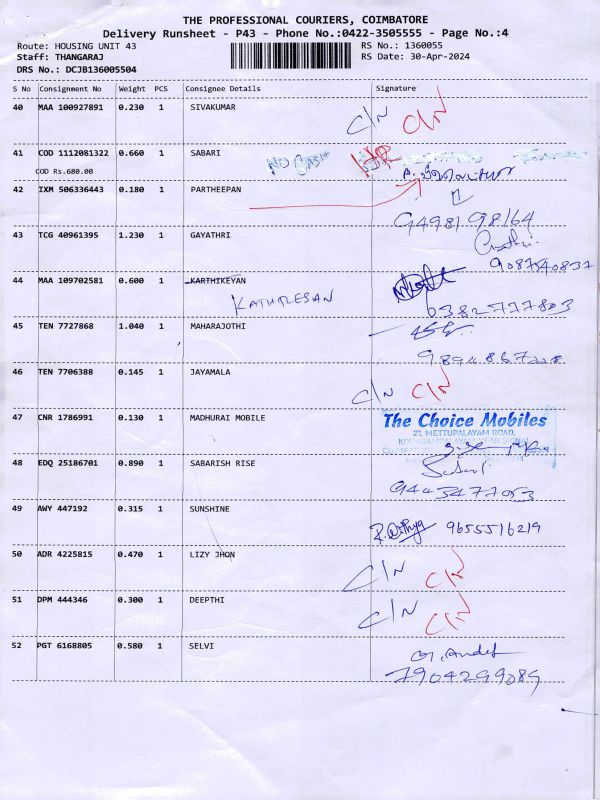 THE PROFESSIONAL COURIERS, COIMBATORE
Delivery Runsheet - P43 - Phone No.:0422-3505555 - Page No.:4
Route: HOUSING UNIT 43 RS No.: 1360055
Staff: THANGARAJ RS Date: 30-Apr-2024
DRS No.: DCJB136005504
S No Consignment No Weight PCS Consignee Details Signature
40 MAA 100927891 0.230 1 SIVAKUMAR C/N C/N
41 COD 1112081322 0.660 1 SABARI NO CASH
COD Rs.680.00
42 IXM 506336443 0.180 1 PARTHEEPAN
9498198164
43 TCG 40961395 1.230 1 GAYATHRI
9087540837
44 MAA 109702581 0.600 1 KARTHIKEYAN
KATHIRESAN 6382717803
45 TEN 7727868 1.040 1 MAHARAJOTHI
46 TEN 7706388 0.145 1 JAYAMALA C/N C/N
47 CNR 1786991 0.130 1 MADHURAI MOBILE The Choice Mobiles
21, METTUPALAYAM ROAD,
48 EDQ 25186701 0.890 1 SABARISH RISE
9443477053
49 AWY 447192 0.315 1 SUNSHINE 9655516219
50 ADR 4225815 0.470 1 LIZY JHON C/N C/N
51 DPM 444346 0.300 1 DEEPTHI C/N C/N
52 PGT 6168805 0.580 1 SELVI
7904299089